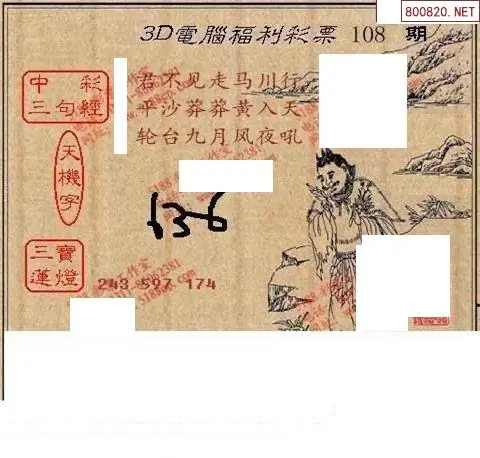 800820.NET
3D電腦福利彩票 108 期
中彩
三句經
君不见走马川行
平沙莽莽黄入天
轮台九月风夜吼
天機字
136
三寶
蓮燈
243 597 174